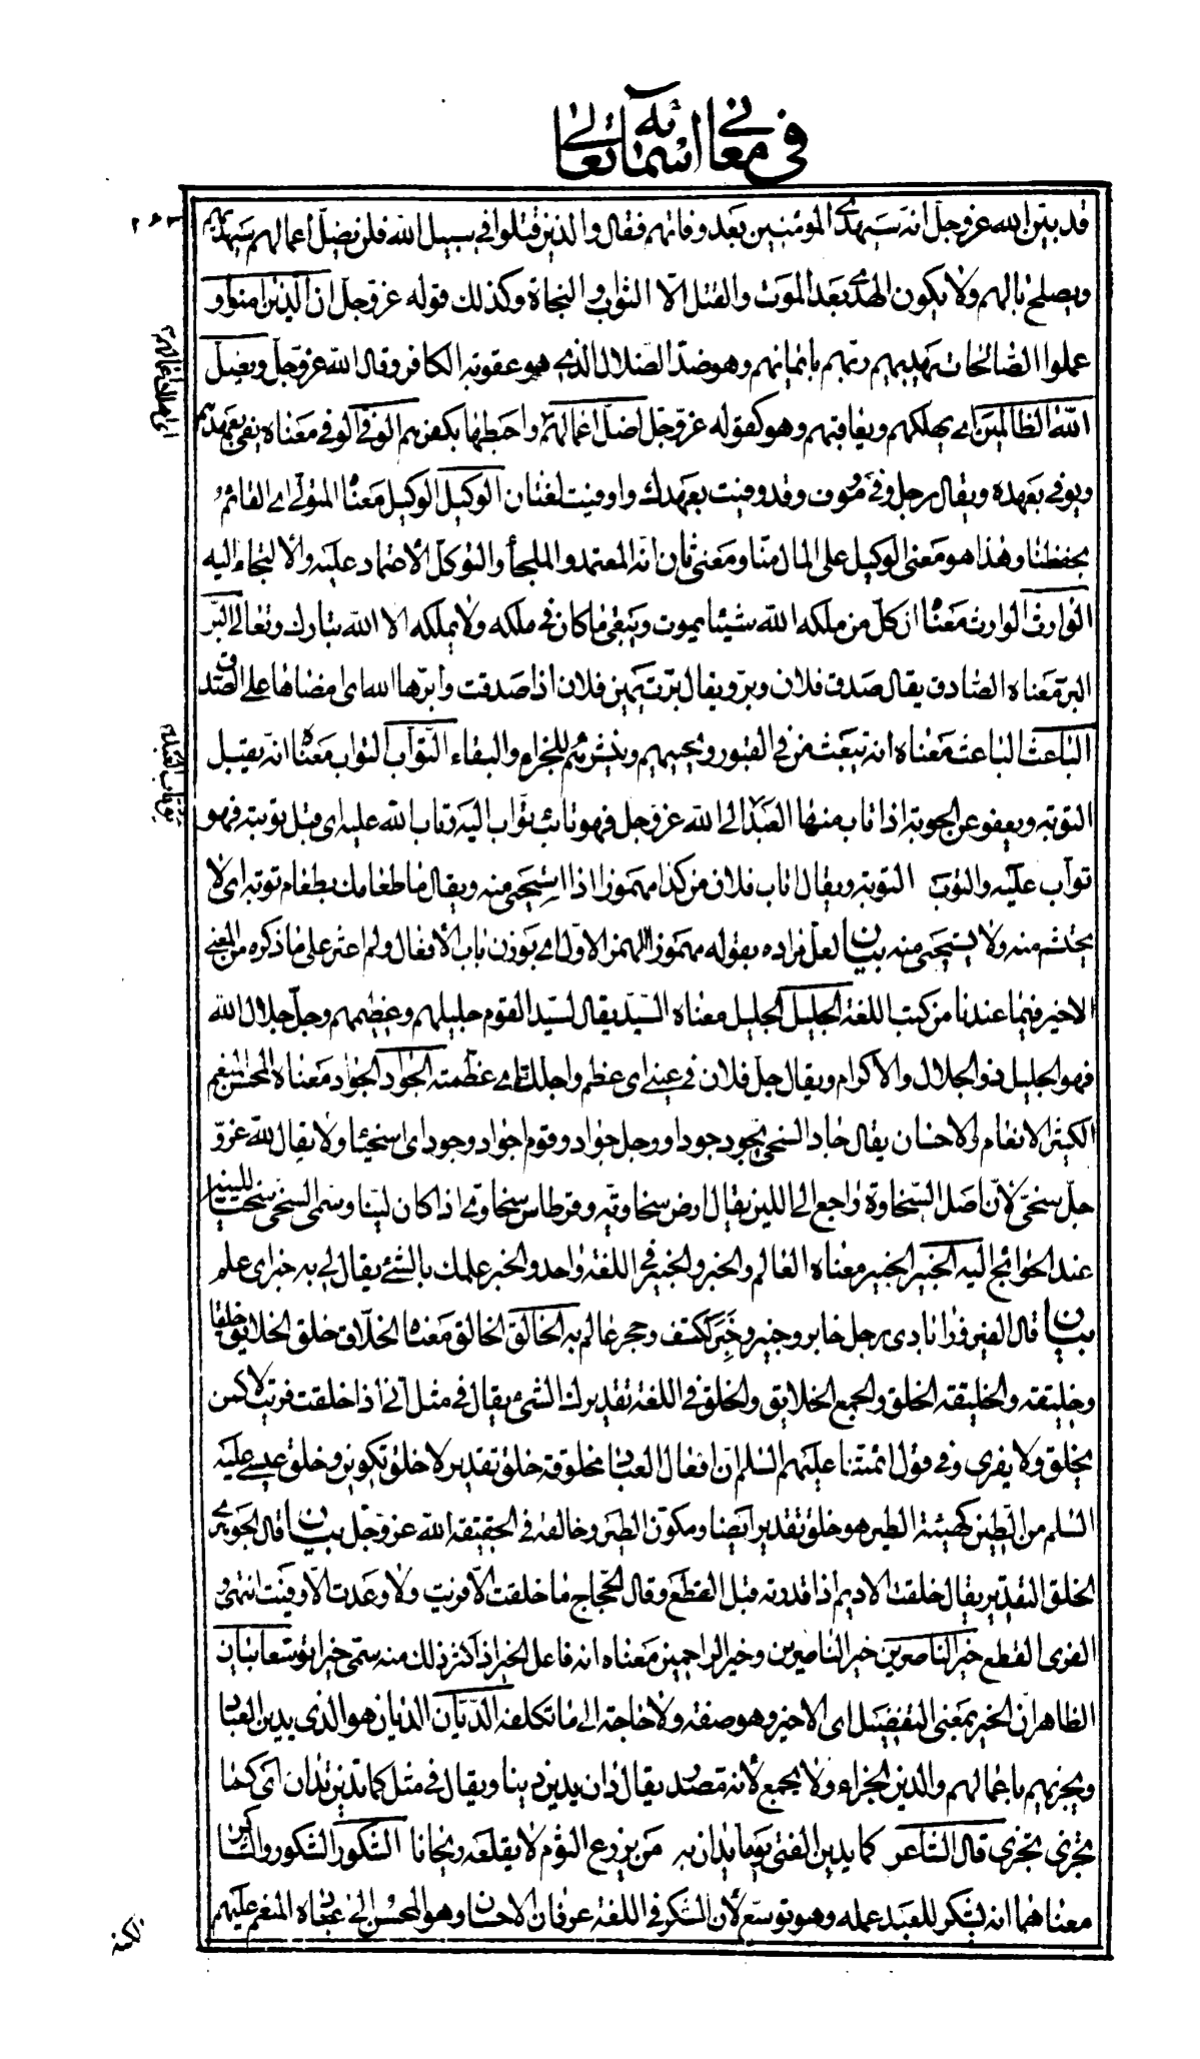 في معاني اسمائه تعالى
٢٤٣
قد بيّن الله عز وجل انه سيهدى المؤمنين بعد وفاتهم فقال والذين قتلوا في سبيل الله فلن يضل اعمالهم سيهديهم
ويصلح بالهم ولا يكون الهدى بعد الموت والقتل الا الثواب والنجاة وكذلك قوله عز وجل ان الذين امنوا و
عملوا الصالحات يهديهم ربهم بايمانهم وهو ضد الضلال الذى هو عقوبة الكافر وقال الله عز وجل ويضل
الله الظالمين اى يهلكهم ويعاقبهم وهو كقوله عز وجل اضل اعمالهم اى اهلك اعمالهم واحبطها بكفرهم الوفي الوفي معناه يفي بعهدهم
ويوفي بعهده ويقال رجل وفي وموف وقد وفيت بعهدك واوفيت لغتان الوكيل الوكيل معناه المتولى اى القائم
بحفظنا وهذا هو معنى الوكيل على المال منا ومعنى ثان انه المعتمد والملجأ والتوكل الاعتماد عليه والالتجاء اليه
الوارث الوارث معناه ان كل من ملكه الله شيئا يموت ويبقى ما كان في ملكه ولا يملكه الا الله تبارك وتعالى البر
البر معناه الصادق يقال صدق فلان وبر ويقال برت يمين فلان اذا صدقت وابرها الله اى امضاها على الصدق
الباعث الباعث معناه انه يبعث من في القبور ويحييهم وينشرهم للجزاء والبقاء التواب التواب معناه انه يقبل
التوبة ويعفو عن الحوبة اذا تاب منها العبد يقال تاب العبد الى الله عز وجل فهو تائب تواب اليه وتاب الله عليه اى قبل توبته فهو
تواب عليه والتوب التوبة ويقال اتاب فلان من كذا مهموزا اذا استحيى منه ويقال ما طعامك بطعام توبة اى لا
يحتشم منه ولا يستحيى منه بيان لعل مراده بقوله مهموزا الهمز الاول اى بوزن باب الافعال ولم اعثر على ما ذكره من المعنى
الاخير فيما عندنا من كتب اللغة الجليل الجليل معناه السيد يقال لسيد القوم جليلهم وعظيمهم وجل جلال الله
فهو الجليل ذو الجلال والاكرام ويقال جل فلان في عينى اى عظم واجللته اى عظمته الجواد الجواد معناه المحسن المنعم
الكثير الانعام والاحسان يقال جاد السخى يجود جودا ورجل جواد وقوم اجواد وجود اى اسخياء ولا يقال لله عز و
جل سخى لان اصل السخاوة راجع الى اللين يقال ارض سخاوية وقرطاس سخاوى اذا كان لينا وسمى السخى سخيا للينه
عند الحوائج اليه الخبير الخبير معناه العالم والخبر والخبير في اللغة واحد والخبر علمك بالشئ يقال لى به خبر اى علم
بيان قال الفيروزابادى رجل خابر وخبير وخبر ككتف وحجر عالم به الخالق الخالق معناه الخلاق خلق الخلايق خلقا
وخليقة والخليقة الخلق والجمع الخلايق والخلق في اللغة تقديرك الشئ يقال في مثل انى اذا خلقت فريت لا كمن
يخلق ولا يفرى وفي قول ائمتنا عليهم السلم ان افعال العباد مخلوقة خلق تقدير لا خلق تكوين وخلق عيسى عليه
السلم من الطين كهيئة الطير هو خلق تقدير ايضا ومكون الطير وخالقه في الحقيقة الله عز وجل بيان قال الجوهرى
الخلق التقدير يقال خلقت الاديم اذا قدرته قبل القطع وقال الحجاج ما خلقت الا فريت ولا وعدت الا وفيت انتهى و
الفرى القطع خير الناصرين خير الناصرين وخير الراحمين معناه ان فاعل الخير اذا كثر ذلك منه سمى خيرا توسعا بيان
الظاهر ان الخير بمعنى التفضيل اى الاخير وهو صفة ولا حاجة الى ما تكلفه الديان الديان هو الذى يدين العباد
ويجزيهم باعمالهم والدين الجزاء ولا يجمع لانه مصدر يقال دان يدين دينا ويقال في مثل كما تدين تدان اى كما
تجزى تجزى قال الشاعر كما يدين الفتى يوما يدان به من يزرع الثوم لا يقلعه ريحانا الشكور الشكور والشاكر
معناهما انه يشكر للعبد عمله وهو توسع لان الشكر في اللغة عرفان الاحسان وهو المحسن الى عباده المنعم عليهم
لكنه